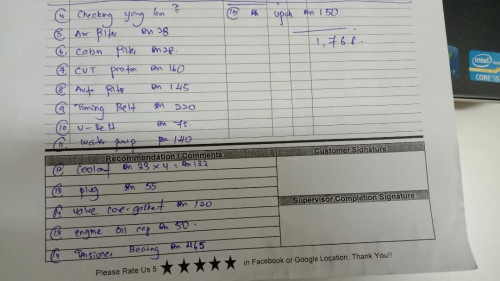 ④ Checking yang lain ?
⑤ Air Filter RM 28
⑥ Cabin Filter RM 28.
⑦ CVT Proton RM 160
⑧ Auto Filter RM 145
⑨ Timing Belt RM 220
⑩ V-Belt RM 75
⑪ Water pump RM 140
upah RM 150
1,768.
Recommendation / Comments
⑫ Coolant RM 33 x 4 = RM 132
⑬ plug RM 55
valve cover gasket RM 120
engine oil cap RM 50.
Tensioner Bearing RM 465
Customer Signature
Supervisor Completion Signature
Please Rate Us 5 ★★★★★ in Facebook or Google Location. Thank You!!
intel
CORE i5